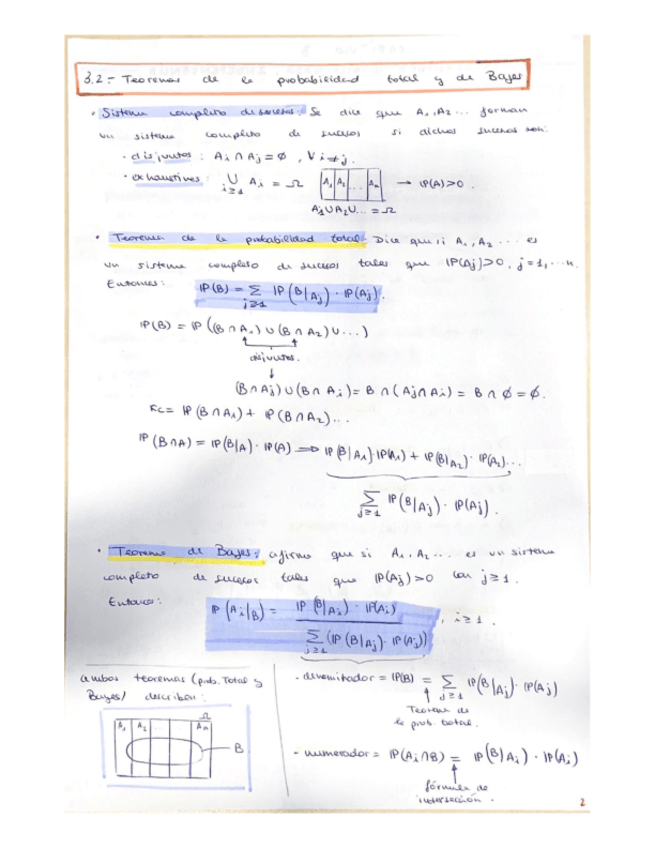 3.2.- Teoremas de la probabilidad total y de Bayes
· Sistema completo de sucesos: Se dice que A₁, A₂ ... forman
un sistema completo de sucesos si dichos sucesos son:
· disjuntos : Ai ∩ Aj = ∅, ∀ i≠j.
· exhaustivos : ∪ i≥1 Ai = Ω A₁ A₂ ... An → IP(A)>0.
A₁∪A₂∪... = Ω
· Teorema de la probabilidad total: Dice que si A₁, A₂ ... es
un sistema completo de sucesos tales que IP(Aj)>0, j=1,...n.
Entonces: IP(B) = Σ j≥1 IP(B|Aj) · IP(Aj).
IP(B) = IP((B∩A₁) ∪ (B∩A₂) ∪ ...)
disjuntos.
↓
(B∩Aj) ∪ (B∩Ai) = B ∩ (Aj∩Ai) = B ∩ ∅ = ∅.
= IP(B∩A₁) + IP(B∩A₂)...
IP(B∩A) = IP(B|A) · IP(A) ⟹ IP(B|A₁)·IP(A₁) + IP(B|A₂)·IP(A₂)...
Σ j≥1 IP(B|Aj) · IP(Aj).
· Teorema de Bayes: afirma que si A₁, A₂ ... es un sistema
completo de sucesos tales que IP(Aj)>0 con j≥1.
Entonces: IP(Ai|B) = IP(B|Ai) · IP(Ai) / Σ j≥1 (IP(B|Aj) · IP(Aj)) , i≥1.
ambos teoremas (prob. Total y
Bayes) describen:
Ω
A₁ A₂ ... An
B
· denominador = IP(B) = Σ j≥1 IP(B|Aj) · IP(Aj)
↑
Teorema de
la prob. total.
- numerador = IP(Ai∩B) = IP(B|Ai) · IP(Ai)
↑
fórmula de
intersección.
2